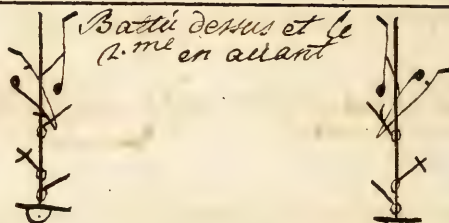 Battû dessus et le
2.me en avant